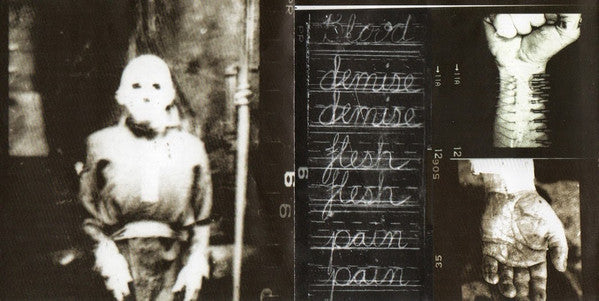 Blood
demise
demise
flesh
flesh
pain
pain
→11A
→11A
12
12605
35
9
6